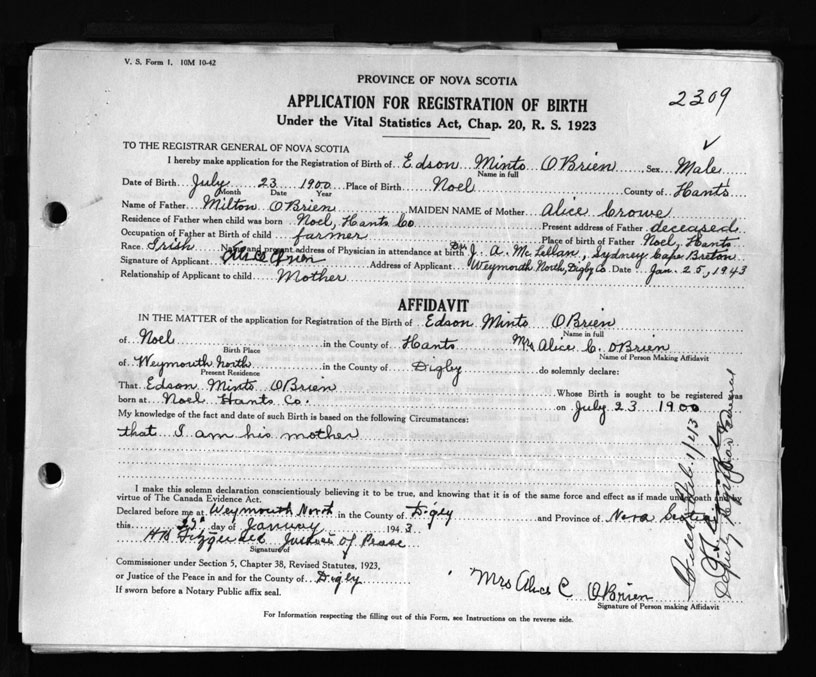 V. S. Form 1. 10M 10-42
PROVINCE OF NOVA SCOTIA
2309
APPLICATION FOR REGISTRATION OF BIRTH
Under the Vital Statistics Act, Chap. 20, R. S. 1923
TO THE REGISTRAR GENERAL OF NOVA SCOTIA
I hereby make application for the Registration of Birth of Edson Minto OBrien Sex Male
Name in full
Date of Birth July 23 1900 Place of Birth Noel County of Hants
Month Date Year
Name of Father Milton OBrien MAIDEN NAME of Mother Alice Crowe
Residence of Father when child was born Noel, Hants Co Present address of Father deceased
Occupation of Father at Birth of child farmer Place of Birth of Father Noel, Hants
Race Irish Name and present address of Physician in attendance at birth J. A. McLellan, Sydney Cape Breton
Signature of Applicant OBrien Address of Applicant Weymouth North, Digby Co. Date Jan. 25, 1943
Relationship of Applicant to child Mother
AFFIDAVIT
IN THE MATTER of the application for Registration of the Birth of Edson Minto OBrien
Name in full
of Noel in the County of Hants Mrs Alice C. OBrien
Birth Place Name of Person Making Affidavit
of Weymouth North in the County of Digby do solemnly declare:
Present Residence
That Edson Minto OBrien Whose Birth is sought to be registered was
born at Noel Hants Co. on July 23 1900
My knowledge of the fact and date of such Birth is based on the following Circumstances:
that I am his mother
I make this solemn declaration conscientiously believing it to be true, and knowing that it is of the same force and effect as if made under oath and by
virtue of The Canada Evidence Act.
Declared before me at Weymouth North in the County of Digby and Province of Nova Scotia
this day of January 1943
Justice of Peace
Signature of
Commissioner under Section 5, Chapter 38, Revised Statutes, 1923,
or Justice of the Peace in and for the County of Digby
If sworn before a Notary Public affix seal.
Mrs Alice C OBrien
Signature of Person making Affidavit
For Information respecting the filling out of this Form, see Instructions on the reverse side.
Feb. 11/43
Deputy Registrar General